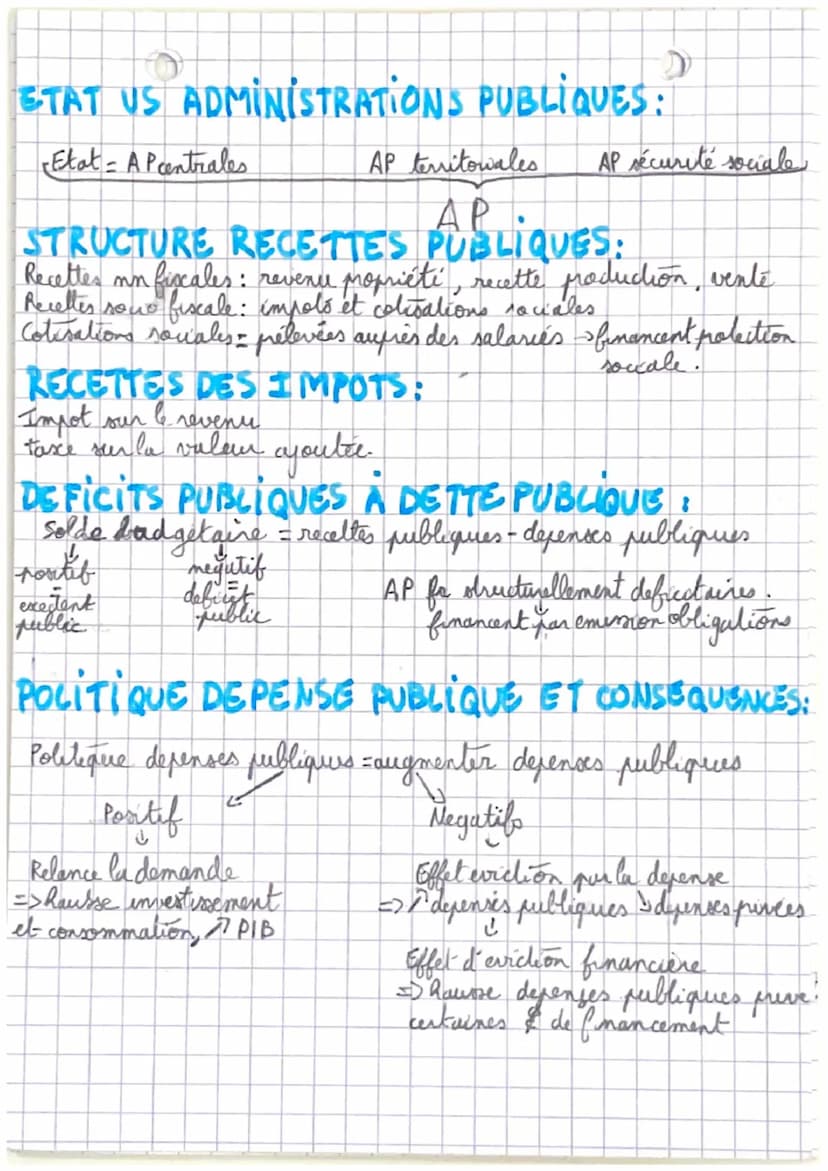 ETAT VS ADMINISTRATIONS PUBLIQUES :
Etat = AP centrales AP territoriales AP sécurité sociale
AP
STRUCTURE RECETTES PUBLIQUES :
Recettes nn fiscales : revenu propriété, recette production, vente
Recettes sous fiscale : impots et cotisations sociales
Cotisations sociales = prélevées auprès des salariés → financent protection
sociale.
RECETTES DES IMPOTS :
Impot sur le revenu
taxe sur la valeur ajoutée.
DEFICITS PUBLIQUES À DETTE PUBLIQUE :
Solde budgétaire = recettes publiques - depenses publiques
↓ ↓
positif negatif
= =
excedent public deficit public
AP fr structurellement deficitaires.
↓
financent par emission obligations
POLITIQUE DEPENSE PUBLIQUE ET CONSEQUENCES :
Politique depenses publiques = augmenter depenses publiques
Positif Negatifs
↓ ↓
Relance la demande
=> Hausse investissement
et consommation, ↗ PIB
Effet eviction par la depense
=> ↗ depenses publiques ↘ depenses privées
↓
Effet d'eviction financière
=> Hausse depenses publiques prive
certaines € de financement